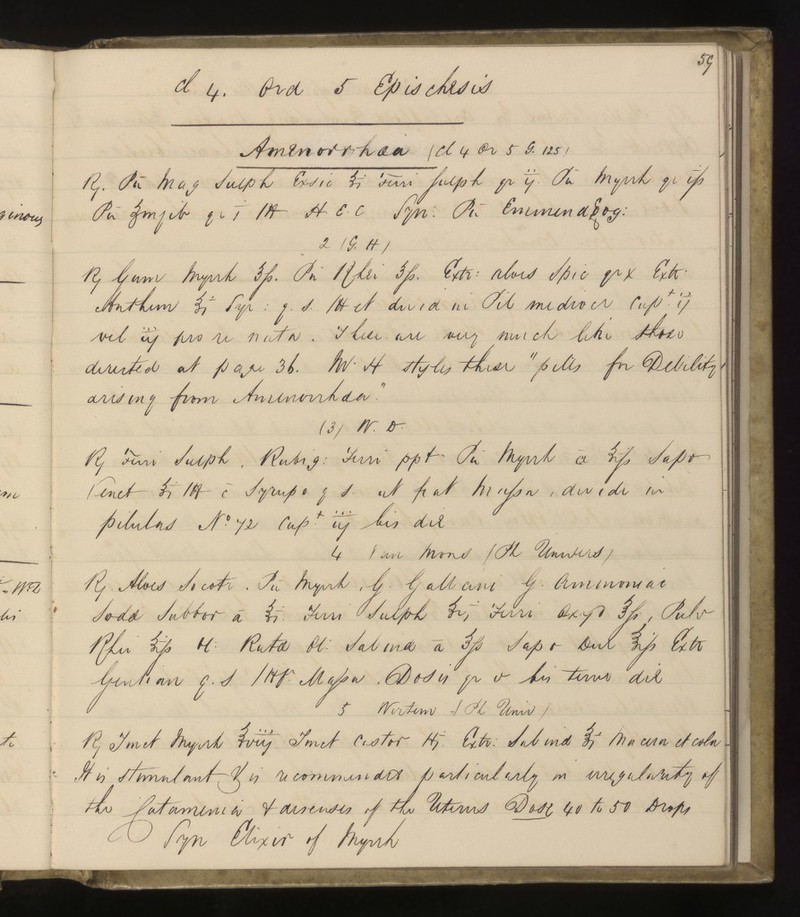 59
Cl 4. Ord 5 Epischesis
Amenorrhœa (Cl 4 Or 5 G. 125)
℞. Pu Mag Sulph Exsic ʒi Ferri Sulph gr ij Pu Myrrh gr iſs
Pu Zingib gr i M H E C Syn: Pu Emmenagog:
2 (G. H)
℞ Gum Myrrh ʒſs. Pu Rhei ʒſs. Extr: aloes Spic gr x Extr.
Anthem ʒi Syr: q. s. M et divid in Pil mediocr Capt ij
vel iij pro re nata. These are very much like those
directed at page 36. Mr. H styles these "pills for Debility
arising from Amenorrhœa."
(3) W. D.
℞ Ferri Sulph. Rubig: Ferri ppt Pu Myrrh a ʒiſs Sapo
Venet ʒi M c Syrupo q s ut fiat Maſsa, divide in
pilulas No 72 Capt iij bis die
4 Van Mons (Ph Univers)
℞ Aloes Socotr. Pu Myrrh, G. Galbani G. Ammoniac
Sodæ Subbor a ʒi. Ferri Sulph Ferri Oxyd ʒſs, Pulv
Rhei ʒiſs Ol: Rutæ Ol: Sabinæ a ʒſs Sapo Dur ʒiſs Extr
Gentian q. s. Maſsa. Dosis gr v bis terve die
5 (Ph Univ)
℞ Tinct Myrrh ʒviij Tinct Castor Extr: Sabinæ ʒi Macera et cola
It is stimulant & is recommended particularly in irregularity of
the Catamenia & diseases of the Uterus Dose 40 to 50 Drops
Syn Elixir of Myrrh
ginous